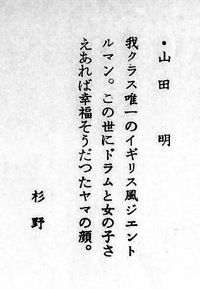 ・山田　明
我クラス唯一のイギリス風ジエント
ルマン。この世にドラムと女の子さ
えあれば幸福そうだつたヤマの顔。
杉野